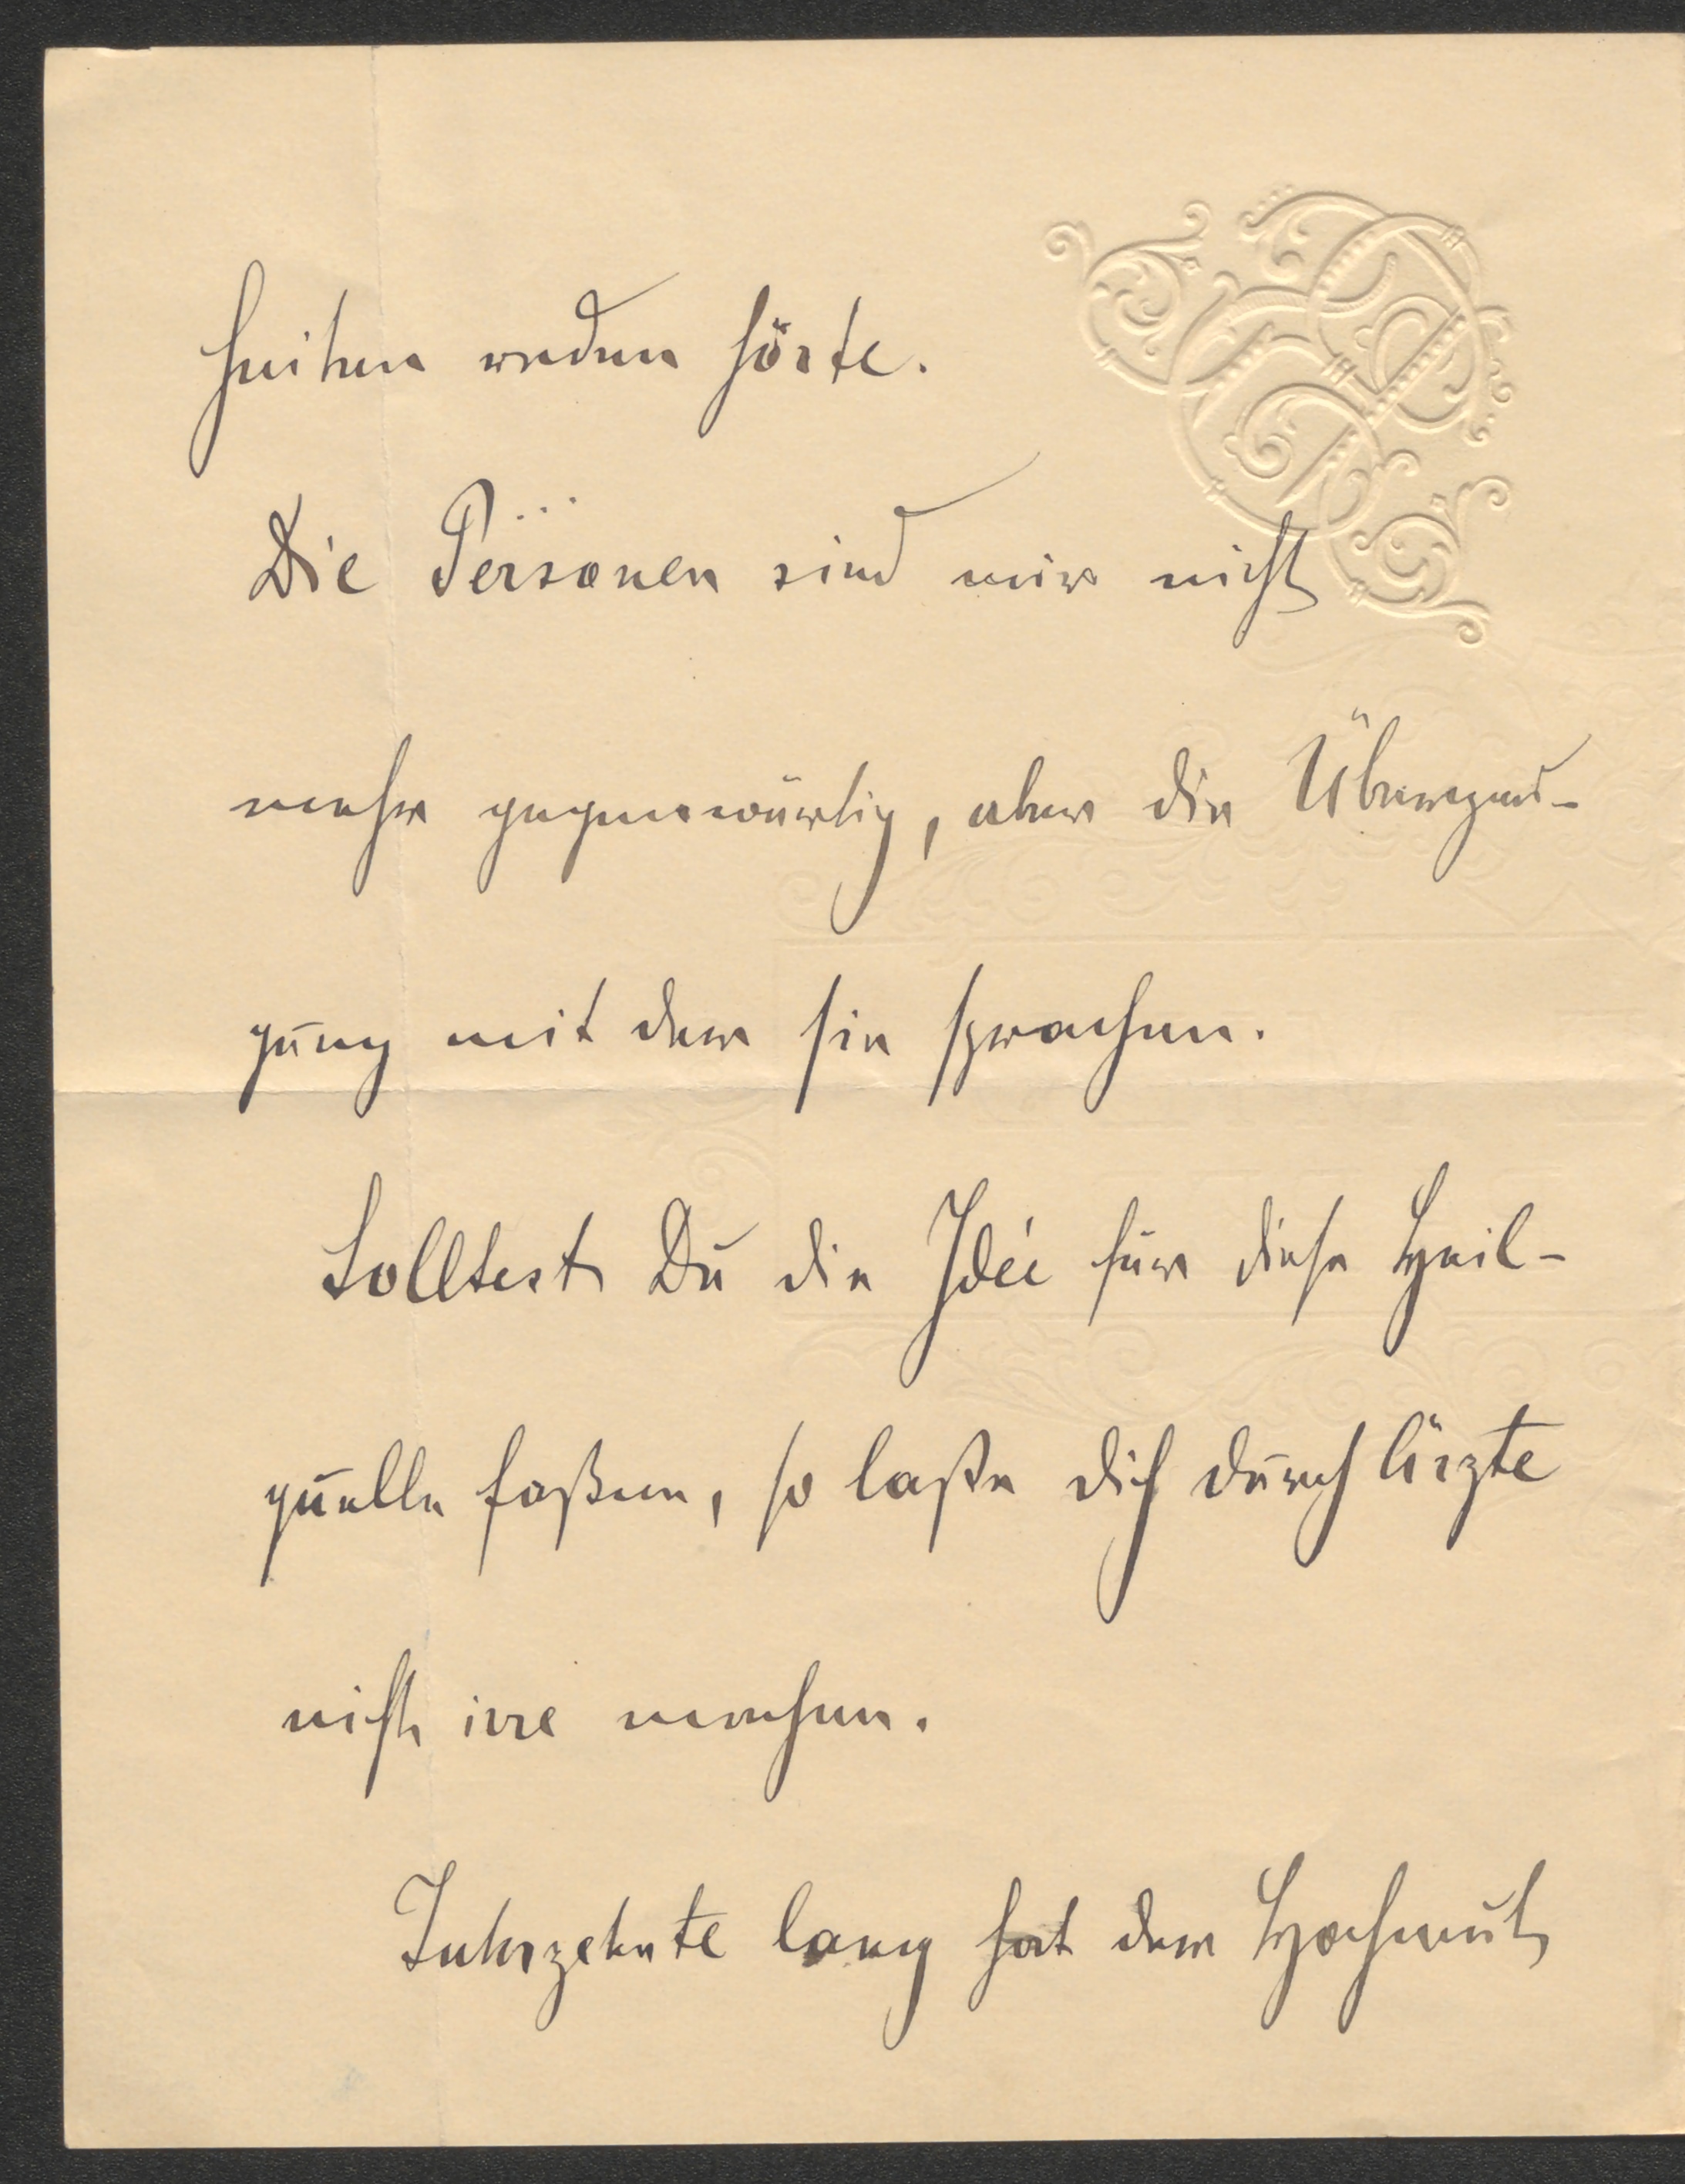 heiten reden hörte.
Die Personen sind mir nicht
mehr gegenwärtig, aber die Überzeu-
gung mit der sie sprachen.
Solltest Du die Idée für diese Heil-
quelle faßen, so laße dich durch Ärzte
nicht irre machen.
Jahrzehnte lang hat der Hochmut